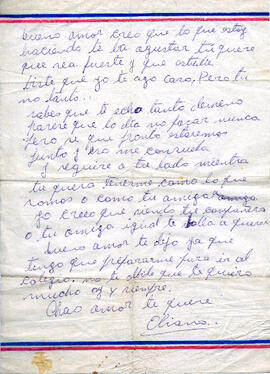 bueno amor creo que lo que estoy
haciendo te ba agustar tu quere
que sea fuerte y que estudie
Dirte que yo te ago caso. Pero tu
no tanto..
sabes que te echo tanto demeno
parese que lo dia no pasar nunca
Pero se que pronto estaremos
junto y eso me consuela
y seguire a tu lado mientra
tu quera tenerme como lo que
somos o como tu amiga
yo creo que, siendo tu compañera
o tu amiga igual te bolba a querer
bueno amor te dejo ya que
tengo que prepararme para ir al
colegio. no te olvide que te quiero
mucho oy y siempre.
Chao amor te quere
Eliana..